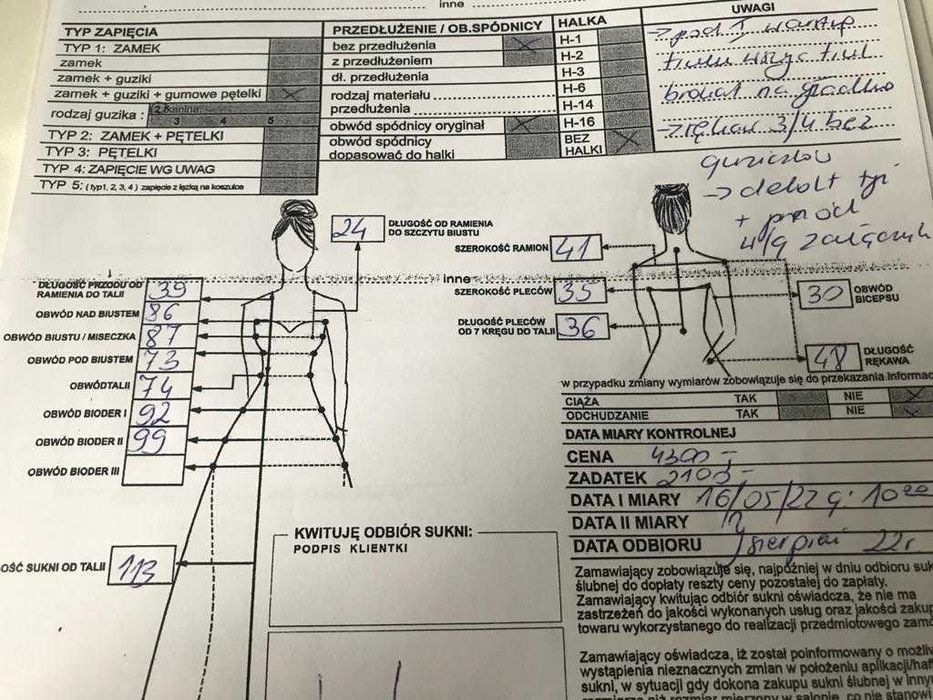 inne
TYP ZAPIĘCIA
TYP 1: ZAMEK
zamek
zamek + guziki
zamek + guziki + gumowe pętelki
rodzaj guzika :
3 4 5
TYP 2: ZAMEK + PĘTELKI
TYP 3: PĘTELKI
TYP 4: ZAPIĘCIE WG UWAG
TYP 5: ( typ1, 2, 3, 4 ) zapięcie z łezką na koszulce
PRZEDŁUŻENIE / OB.SPÓDNICY
bez przedłużenia
z przedłużeniem
dł. przedłużenia
rodzaj materiału
przedłużenia
obwód spódnicy oryginał
obwód spódnicy
dopasować do halki
HALKA
H-1
H-2
H-3
H-6
H-14
H-16
BEZ
HALKI
UWAGI
→ pod I warstwę
tiulu wszyć tiul
brokat na gładko
→ rękaw 3/4 bez
guziczków
→ dekolt tył
+ przód
wg załącznik
24
DŁUGOŚĆ OD RAMIENIA
DO SZCZYTU BIUSTU
inne
DŁUGOŚĆ PRZODU OD
RAMIENIA DO TALII
39
OBWÓD NAD BIUSTEM
86
OBWÓD BIUSTU / MISECZKA
87
OBWÓD POD BIUSTEM
73
OBWÓDTALII
74
OBWÓD BIODER I
92
OBWÓD BIODER II
99
OBWÓD BIODER III
OŚĆ SUKNI OD TALII
113
SZEROKOŚĆ RAMION
41
SZEROKOŚĆ PLECÓW
35
DŁUGOŚĆ PLECÓW
OD 7 KRĘGU DO TALII
36
30
OBWÓD
BICEPSU
48
DŁUGOŚĆ
RĘKAWA
w przypadku zmiany wymiarów zobowiązuje się do przekazania informac
CIĄŻA TAK NIE
ODCHUDZANIE TAK NIE
DATA MIARY KONTROLNEJ
CENA 4300 -
ZADATEK 2100 -
DATA I MIARY 16/05/22 g. 10⁰⁰
DATA II MIARY
DATA ODBIORU sierpień 22r
KWITUJĘ ODBIÓR SUKNI:
PODPIS KLIENTKI
Zamawiający zobowiązuje się, najpóźniej w dniu odbioru suk
ślubnej do dopłaty reszty ceny pozostałej do zapłaty.
Zamawiający kwitując odbiór sukni oświadcza, że nie ma
zastrzeżeń do jakości wykonanych usług oraz jakości zakup
towaru wykorzystanego do realizacji przedmiotowego zamó
Zamawiający oświadcza, iż został poinformowany o możliw
wystąpienia nieznacznych zmian w położeniu aplikacji/haf
sukni, w sytuacji gdy dokona zakupu sukni ślubnej w innym